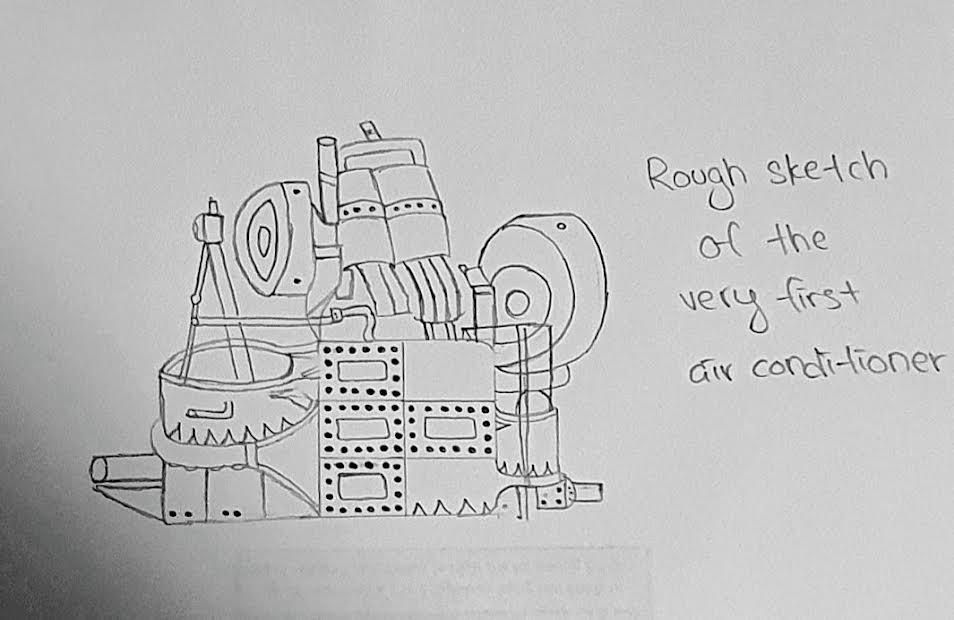 Rough sketch
of the
very first
air conditioner